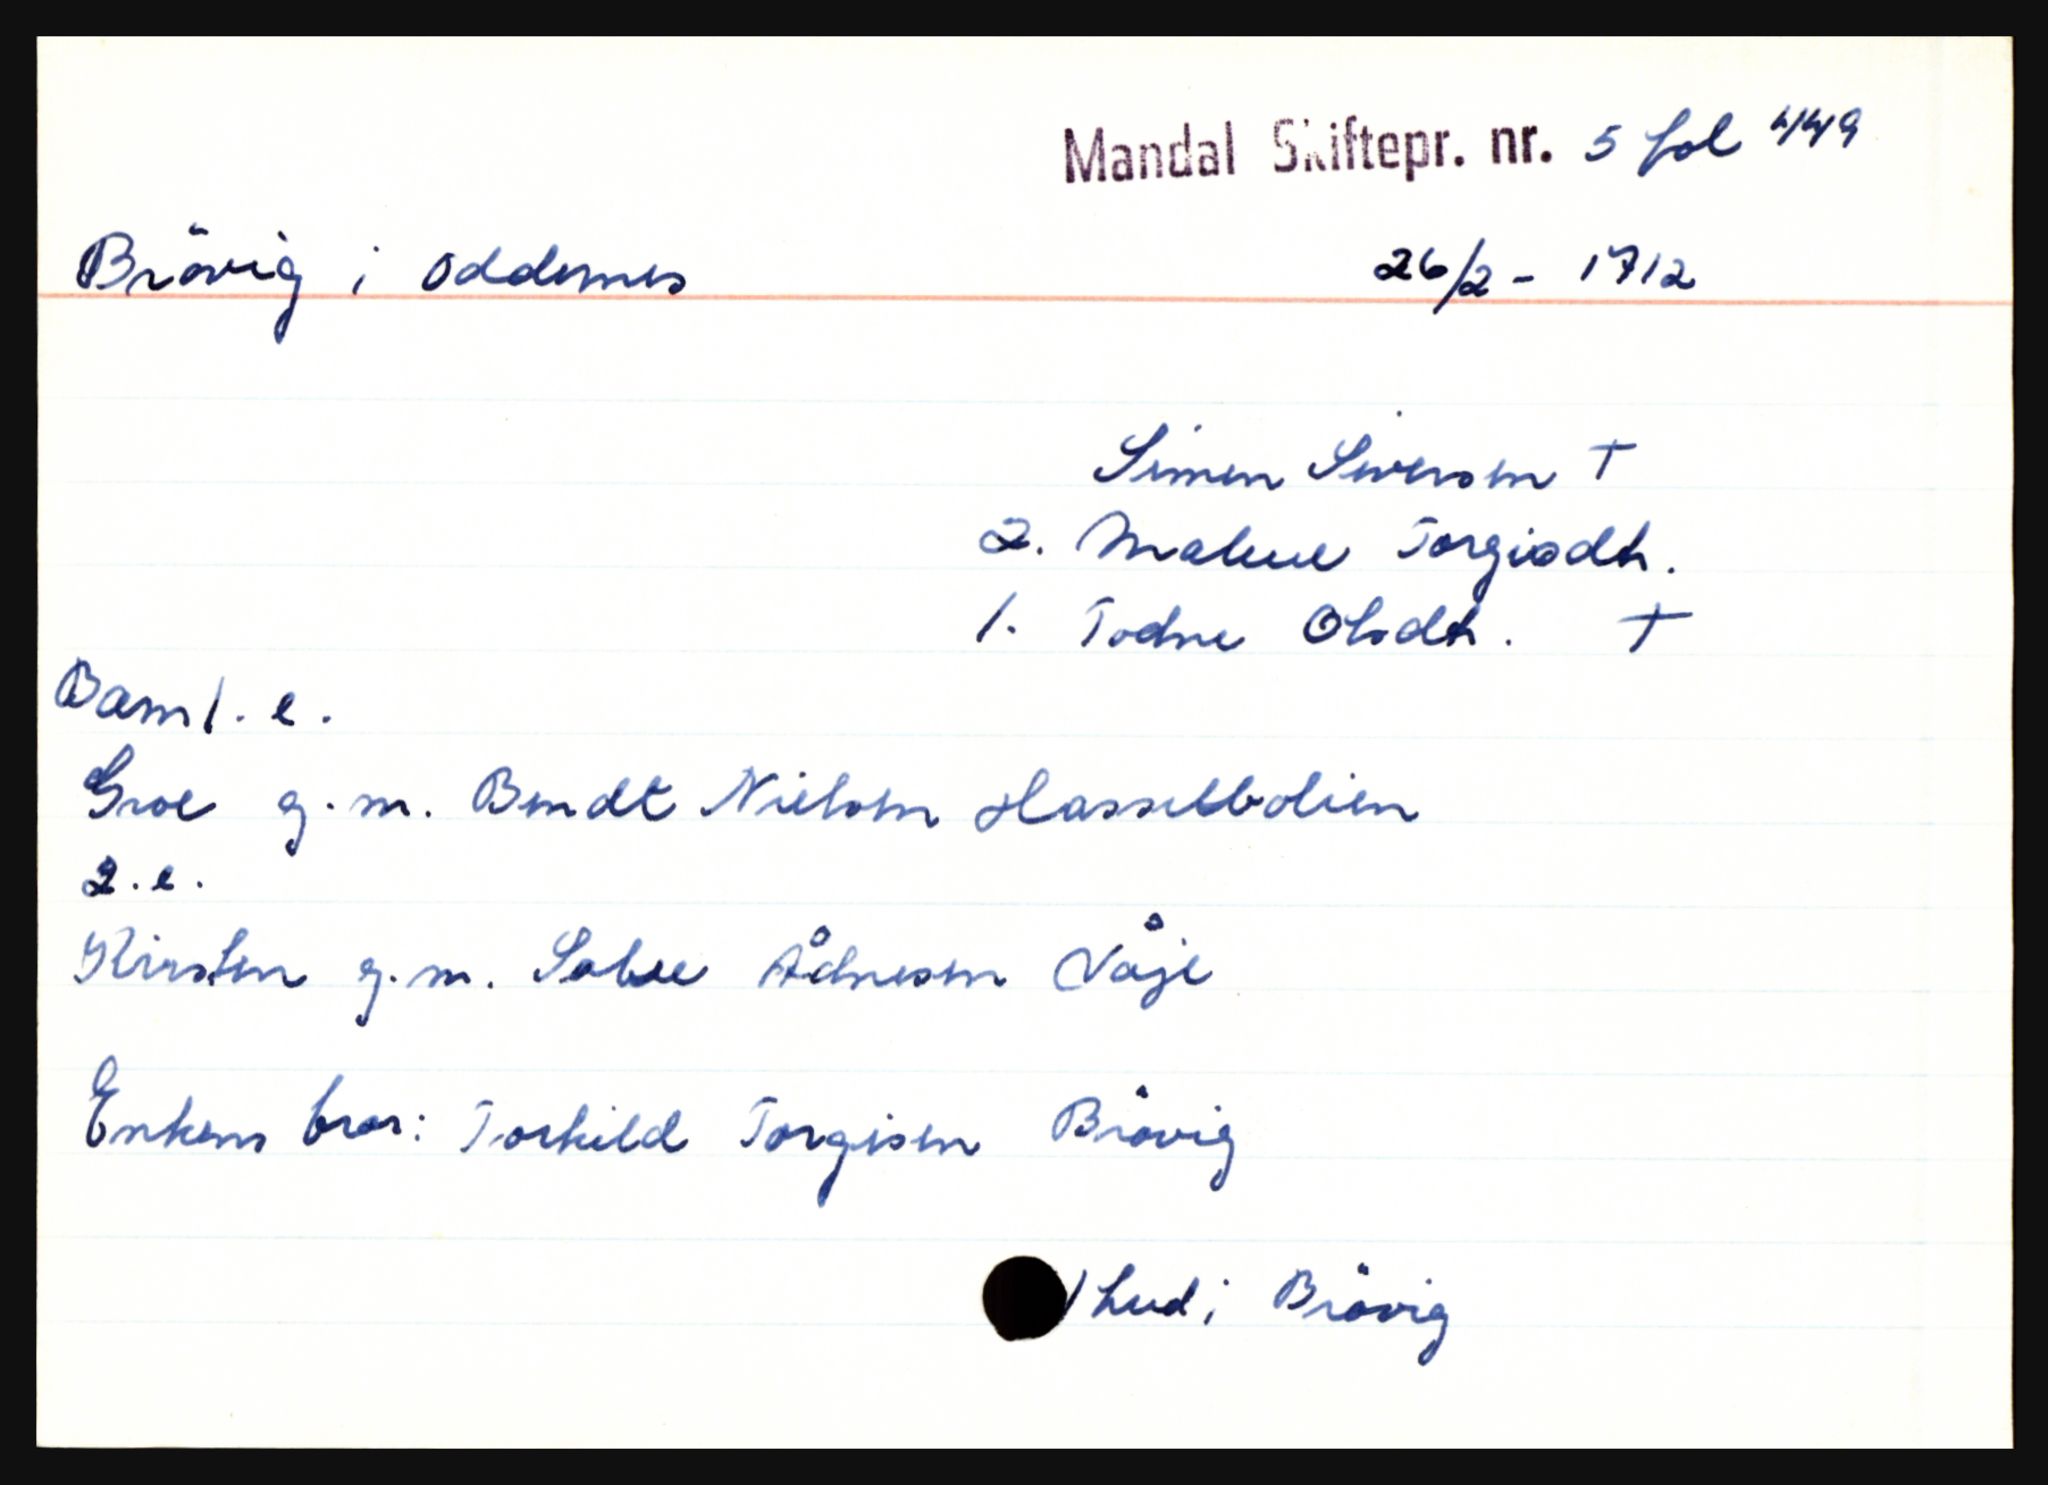 Mandal Skiftepr. nr. 5 fol 449
Brövig i Oddernes 26/2 - 1712
Simen Siversen †
2. Malene Torgisdtr.
1. Todne Olsdtr. †
Barn 1. e.
Groe g. m. Berndt Nielsen Hasselbolien
2. e.
Kirsten g. m. Salve Ådnesen Våje
Enkens bror: Torkild Torgisen Brövig
1 hud i Brövig